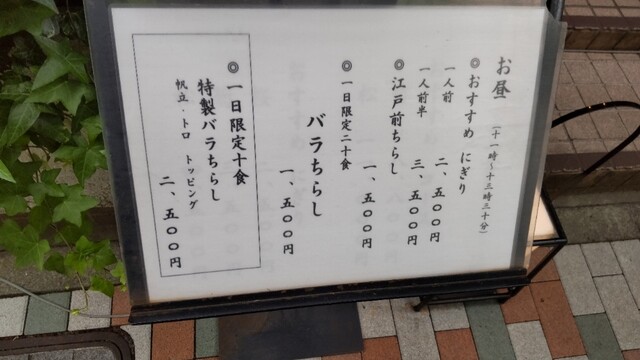 お昼（十一時～十三時三十分）
◎おすすめ にぎり
一人前 二、五〇〇円
一人前半 三、五〇〇円
◎江戸前ちらし
一、五〇〇円
◎一日限定二十食
バラちらし
一、五〇〇円
◎一日限定十食
特製バラちらし
帆立・トロ トッピング
二、五〇〇円